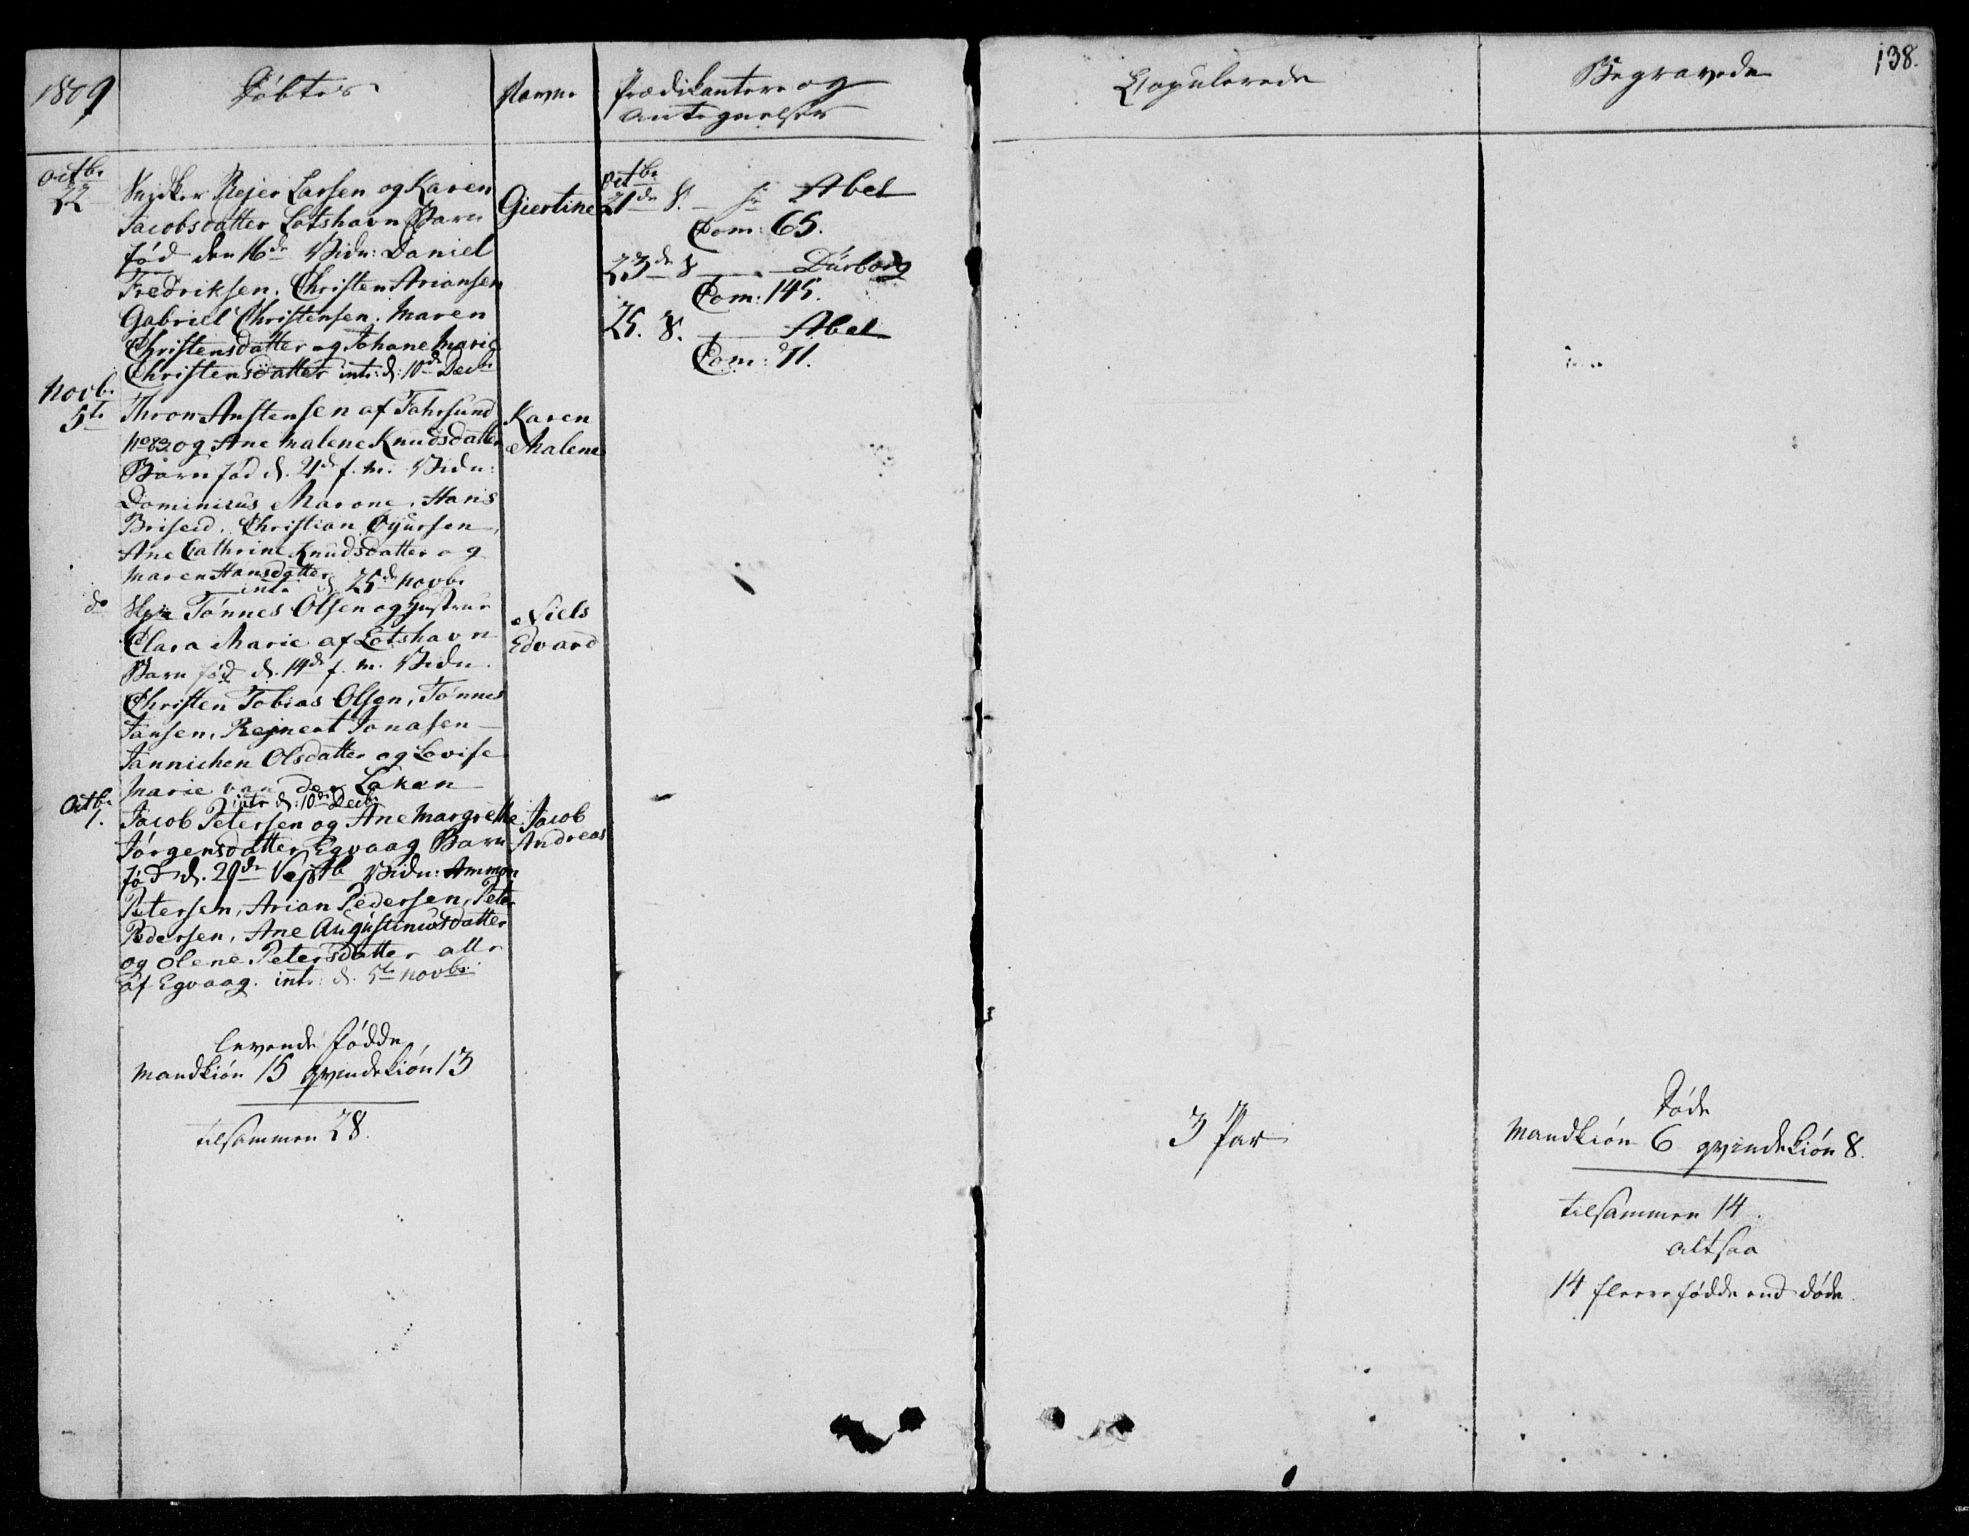 1809
Döbte
Navne
Prædikantere og
Antegnelser
Octbr
22
Snedker Rejer Larsen og Karen
Jacobsdatter Lotshavn Barn
fød den 16de Vidn: Daniel
Fredriksen. Christen Ariansen
Gabriel Christensen. Maren
Christensdatter og Johane Marie
Christensdatter intr: d: 10de Decbr
Giertine
Novbr
5te
Thron Anstensen af Fahrsund
No 83 og Ane Malene Knudsdatter
Barn fød d. 21de f. m. Vidn:
Dominicus Marone, Hans
Briseid. Christian Gjursen,
Ane Cathrine Knudsdatter og
Maren Hansdatter
intr d 25de Novbr
Karen
Malene
do
Tønnes Olsen og Hustrue
Clara Marie af Lotshavn
Barn fød d. 14de f. m. Vidn.
Christen Tobias Olsen, Tønnes
Jansen, Rejnert Jonasen
Jannichen Olsdatter og Lovise
Marie van der Laken
intr d: 10de Decbr
Niels
Edvard
Octbr
1.
Jacob Petersen og Ane Margrethe
Jørgensdatter Egvaag Barn
fød d. 29de Septb Vidn: Ammon
Petersen, Arian Pedersen, Peter
Pedersen, Ane Augustinusdatter
og Olene Petersdatter alle
af Egvaag. intr: d. 5te Novbr.
Jacob
Andreas
levende fødde
Mandkiön 15 qvindekiön 13
tilsammen 28.
Octbr
21de S. Hr Abel
Com: 65.
23de S Dürborg
Com: 145.
25. S. Abel
Com: 71.
Copulerede
3 Par
Begravede
138.
Døde
Mandkiön 6 qvindekiön 8.
tilsammen 14.
altsaa
14 fleere fødde end døde.